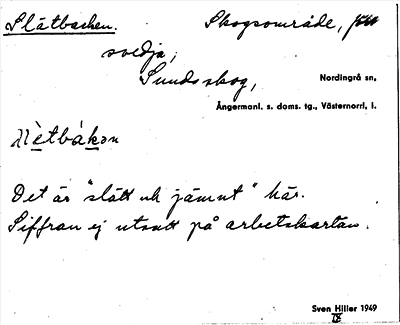 Slätbacken. Skogsområde,
svedja,
Sundsskog, Nordingrå sn,
Ångermanl. s. doms. tg., Västernorrl. l.
Det är "slätt och jämnt" här.
Siffran ej utsatt på arbetskartan.
Sven Hiller 1949